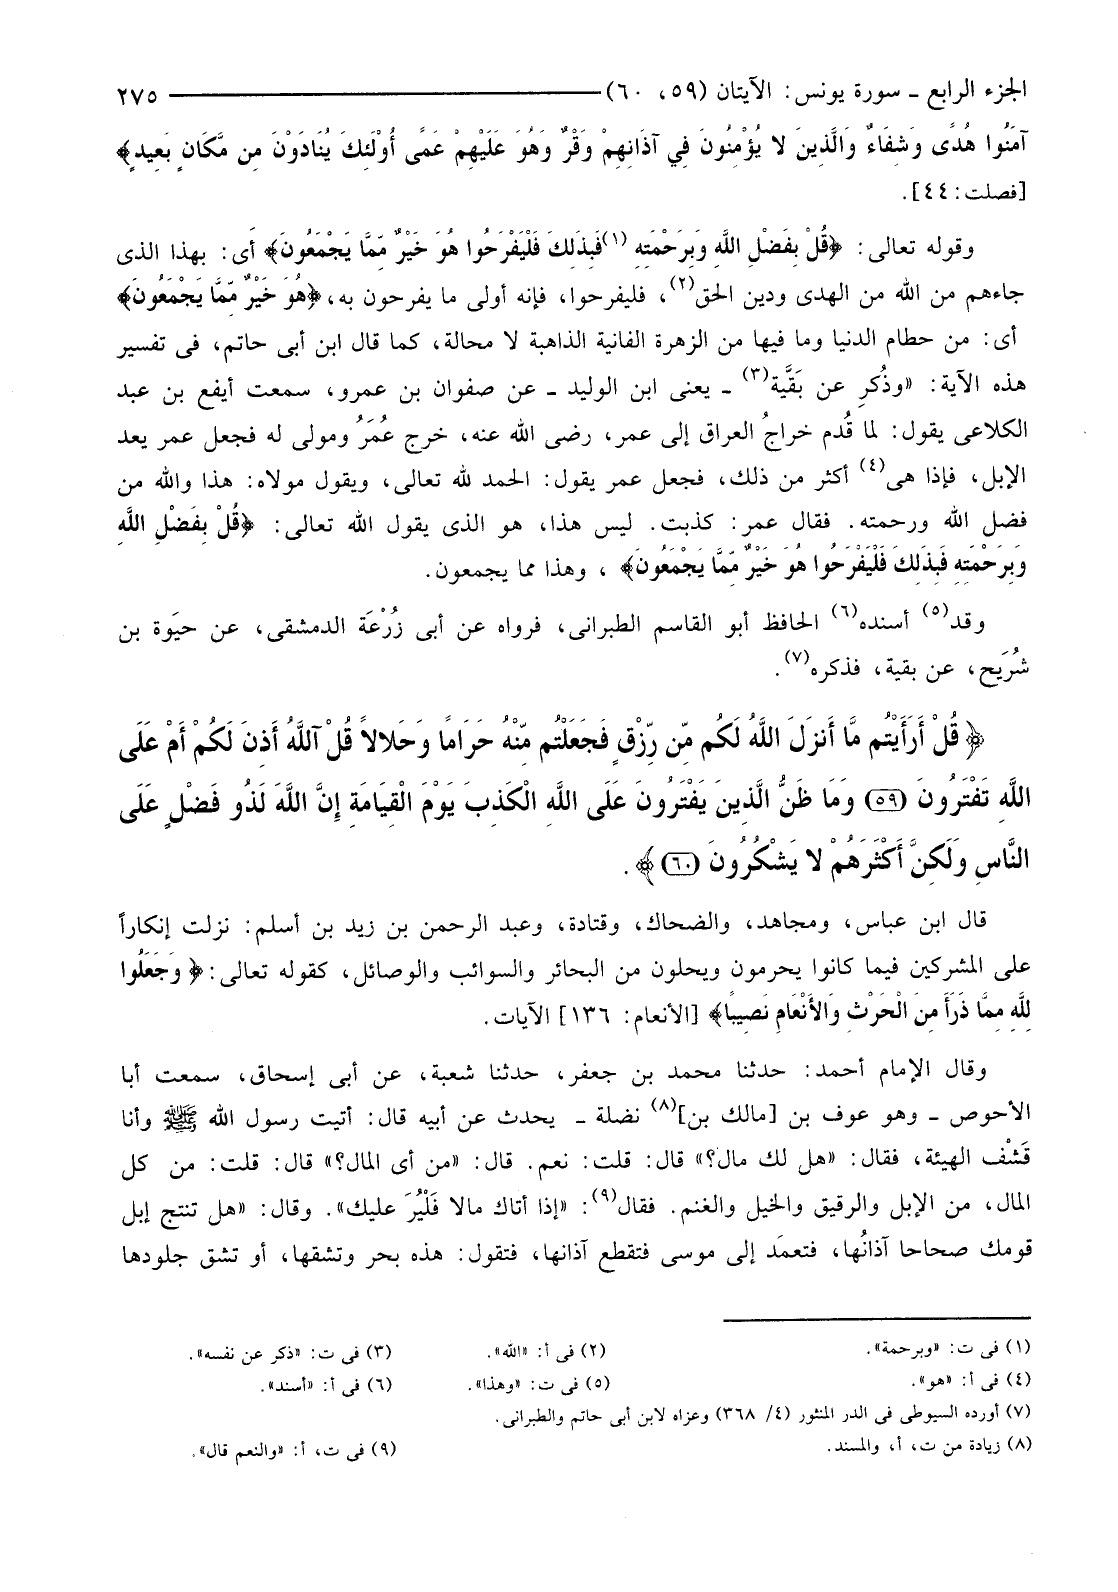 الجزء الرابع ـ سورة يونس: الآيتان (٥٩، ٦٠) ٢٧٥
آمَنُوا هُدًى وَشِفَاءٌ وَالَّذِينَ لا يُؤْمِنُونَ فِي آذَانِهِمْ وَقْرٌ وَهُوَ عَلَيْهِمْ عَمًى أُوْلَئِكَ يُنَادَوْنَ مِن مَّكَانٍ بَعِيدٍ﴾
[فصلت: ٤٤].
وقوله تعالى: ﴿قُلْ بِفَضْلِ اللَّهِ وَبِرَحْمَتِهِ (١) فَبِذَلِكَ فَلْيَفْرَحُوا هُوَ خَيْرٌ مِّمَّا يَجْمَعُونَ﴾ أى: بهذا الذى
جاءهم من الله من الهدى ودين الحق(٢)، فليفرحوا، فإنه أولى ما يفرحون به، ﴿هُوَ خَيْرٌ مِّمَّا يَجْمَعُونَ﴾
أى: من حطام الدنيا وما فيها من الزهرة الفانية الذاهبة لا محالة، كما قال ابن أبى حاتم، فى تفسير
هذه الآية: «وذُكِر عن بَقَيَّة(٣) ـ يعنى ابن الوليد ـ عن صفوان بن عمرو، سمعت أيفع بن عبد
الكلاعى يقول: لما قُدم خراجُ العراق إلى عمر، رضى الله عنه، خرج عُمَرُ ومولى له فجعل عمر يعد
الإبل، فإذا هى(٤) أكثر من ذلك، فجعل عمر يقول: الحمد لله تعالى، ويقول مولاه: هذا والله من
فضل الله ورحمته. فقال عمر: كذبت. ليس هذا، هو الذى يقول الله تعالى: ﴿قُلْ بِفَضْلِ اللَّهِ
وَبِرَحْمَتِهِ فَبِذَلِكَ فَلْيَفْرَحُوا هُوَ خَيْرٌ مِّمَّا يَجْمَعُونَ﴾ ، وهذا مما يجمعون.
وقد(٥) أسنده(٦) الحافظ أبو القاسم الطبرانى، فرواه عن أبى زُرْعَة الدمشقى، عن حيَوة بن
شُرَيح، عن بقية، فذكره(٧).
﴿قُلْ أَرَأَيْتُم مَّا أَنزَلَ اللَّهُ لَكُم مِّن رِّزْقٍ فَجَعَلْتُم مِّنْهُ حَرَامًا وَحَلالاً قُلْ آللَّهُ أَذِنَ لَكُمْ أَمْ عَلَى
اللَّهِ تَفْتَرُونَ (٥٩) وَمَا ظَنُّ الَّذِينَ يَفْتَرُونَ عَلَى اللَّهِ الْكَذِبَ يَوْمَ الْقِيَامَةِ إِنَّ اللَّهَ لَذُو فَضْلٍ عَلَى
النَّاسِ وَلَكِنَّ أَكْثَرَهُمْ لا يَشْكُرُونَ (٦٠)﴾.
قال ابن عباس، ومجاهد، والضحاك، وقتادة، وعبد الرحمن بن زيد بن أسلم: نزلت إنكاراً
على المشركين فيما كانوا يحرمون ويحلون من البحائر والسوائب والوصائل، كقوله تعالى: ﴿وَجَعَلُوا
لِلَّهِ مِمَّا ذَرَأَ مِنَ الْحَرْثِ وَالأَنْعَامِ نَصِيبًا﴾ [الأنعام: ١٣٦] الآيات.
وقال الإمام أحمد: حدثنا محمد بن جعفر، حدثنا شعبة، عن أبى إسحاق، سمعت أبا
الأحوص ـ وهو عوف بن [مالك بن](٨) نضلة ـ يحدث عن أبيه قال: أتيت رسول الله ﷺ وأنا
قَشْف الهيئة، فقال: «هل لك مال؟» قال: قلت: نعم. قال: «من أى المال؟» قال: قلت: من كل
المال، من الإبل والرقيق والخيل والغنم. فقال(٩): «إذا أتاك مالا فَلْيُرَ عليك». وقال: «هل تنتج إبل
قومك صحاحا آذانُها، فتعمَد إلى موسى فتقطع آذانها، فتقول: هذه بحر وتشقها، أو تشق جلودها
(١) فى ت: «وبرحمة». (٢) فى أ: «الله». (٣) فى ت: «ذكر عن نفسه».
(٤) فى أ: «هو». (٥) فى ت: «وهذا». (٦) فى أ: «أسند».
(٧) أورده السيوطى فى الدر المنثور (٤/ ٣٦٨) وعزاه لابن أبى حاتم والطبرانى.
(٨) زيادة من ت، أ، والمسند. (٩) فى ت، أ: «والنعم قال».